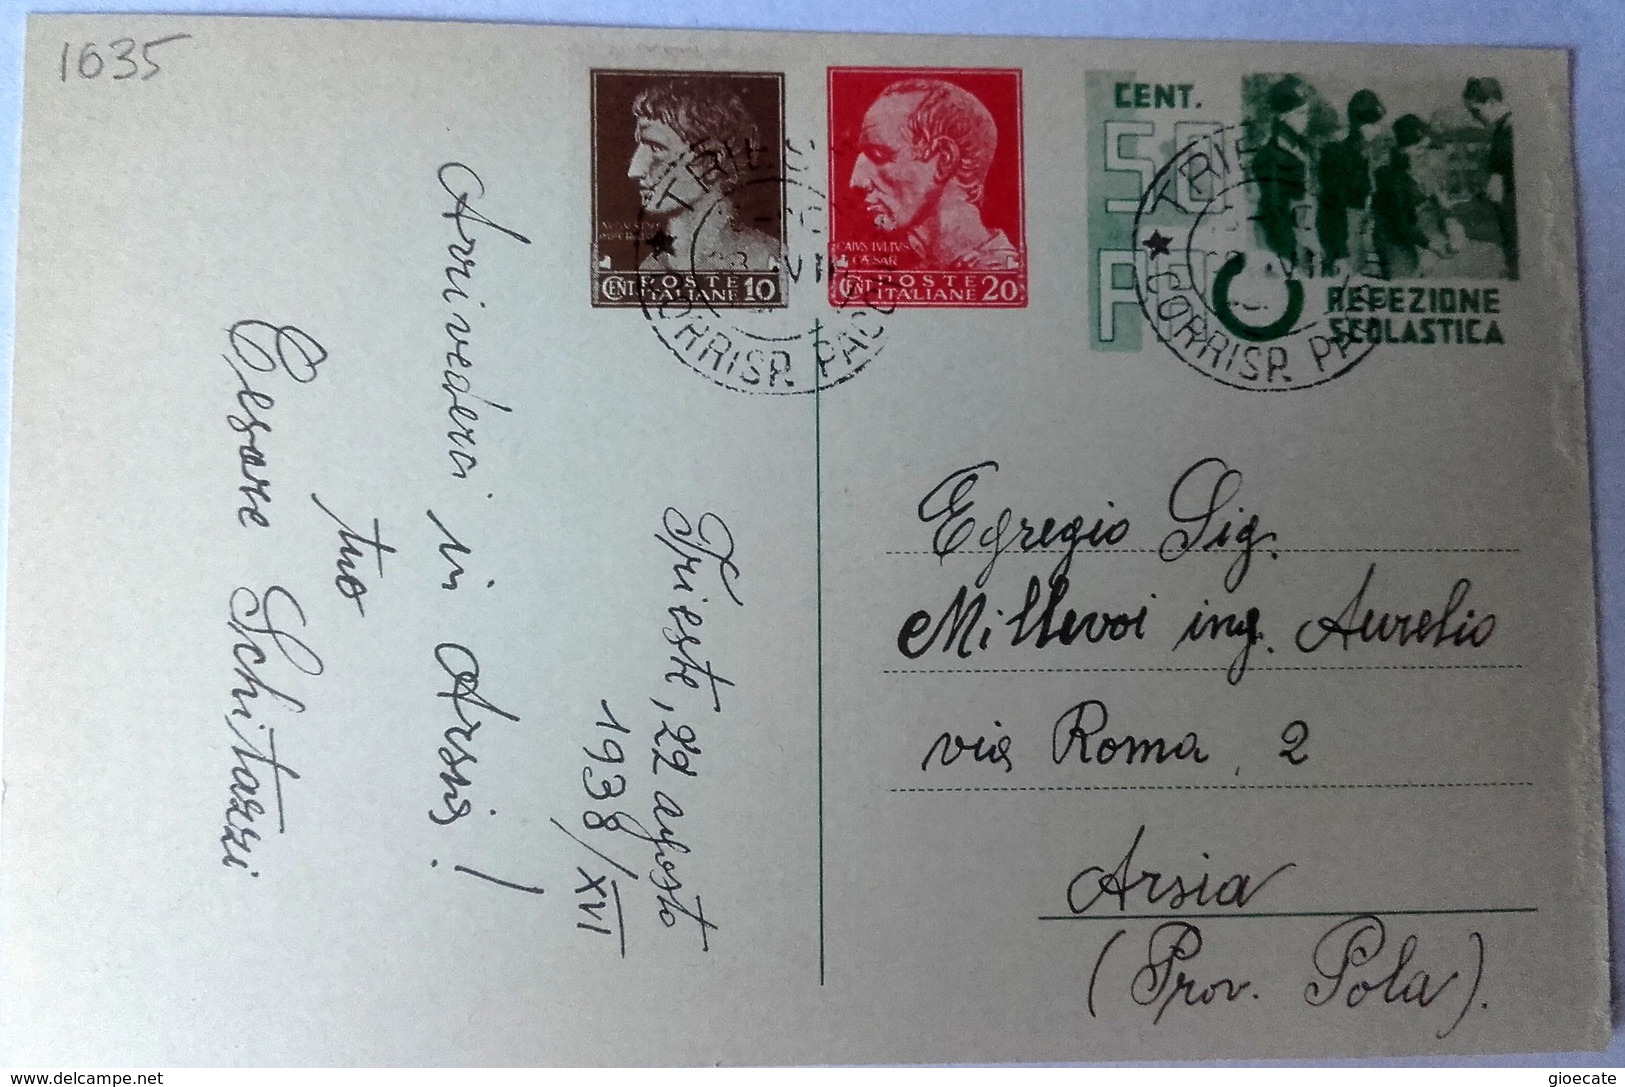 1635
CENT.
50
REFEZIONE
SCOLASTICA
CAIVS IVLIVS
CAESAR
CENT. 10
POSTE
ITALIANE
CENT. 20
POSTE
ITALIANE
TRIES
CORRISP. PACC
TRIE
CORRISP. PA
Trieste, 22 agosto
1938/XVI
Arrivederci in Arsia!
tuo
Cesare Schitazzi
Egregio Sig.
Millevoi ing. Aurelio
via Roma, 2
Arsia
(Prov. Pola).
www.delcampe.net
gioecate